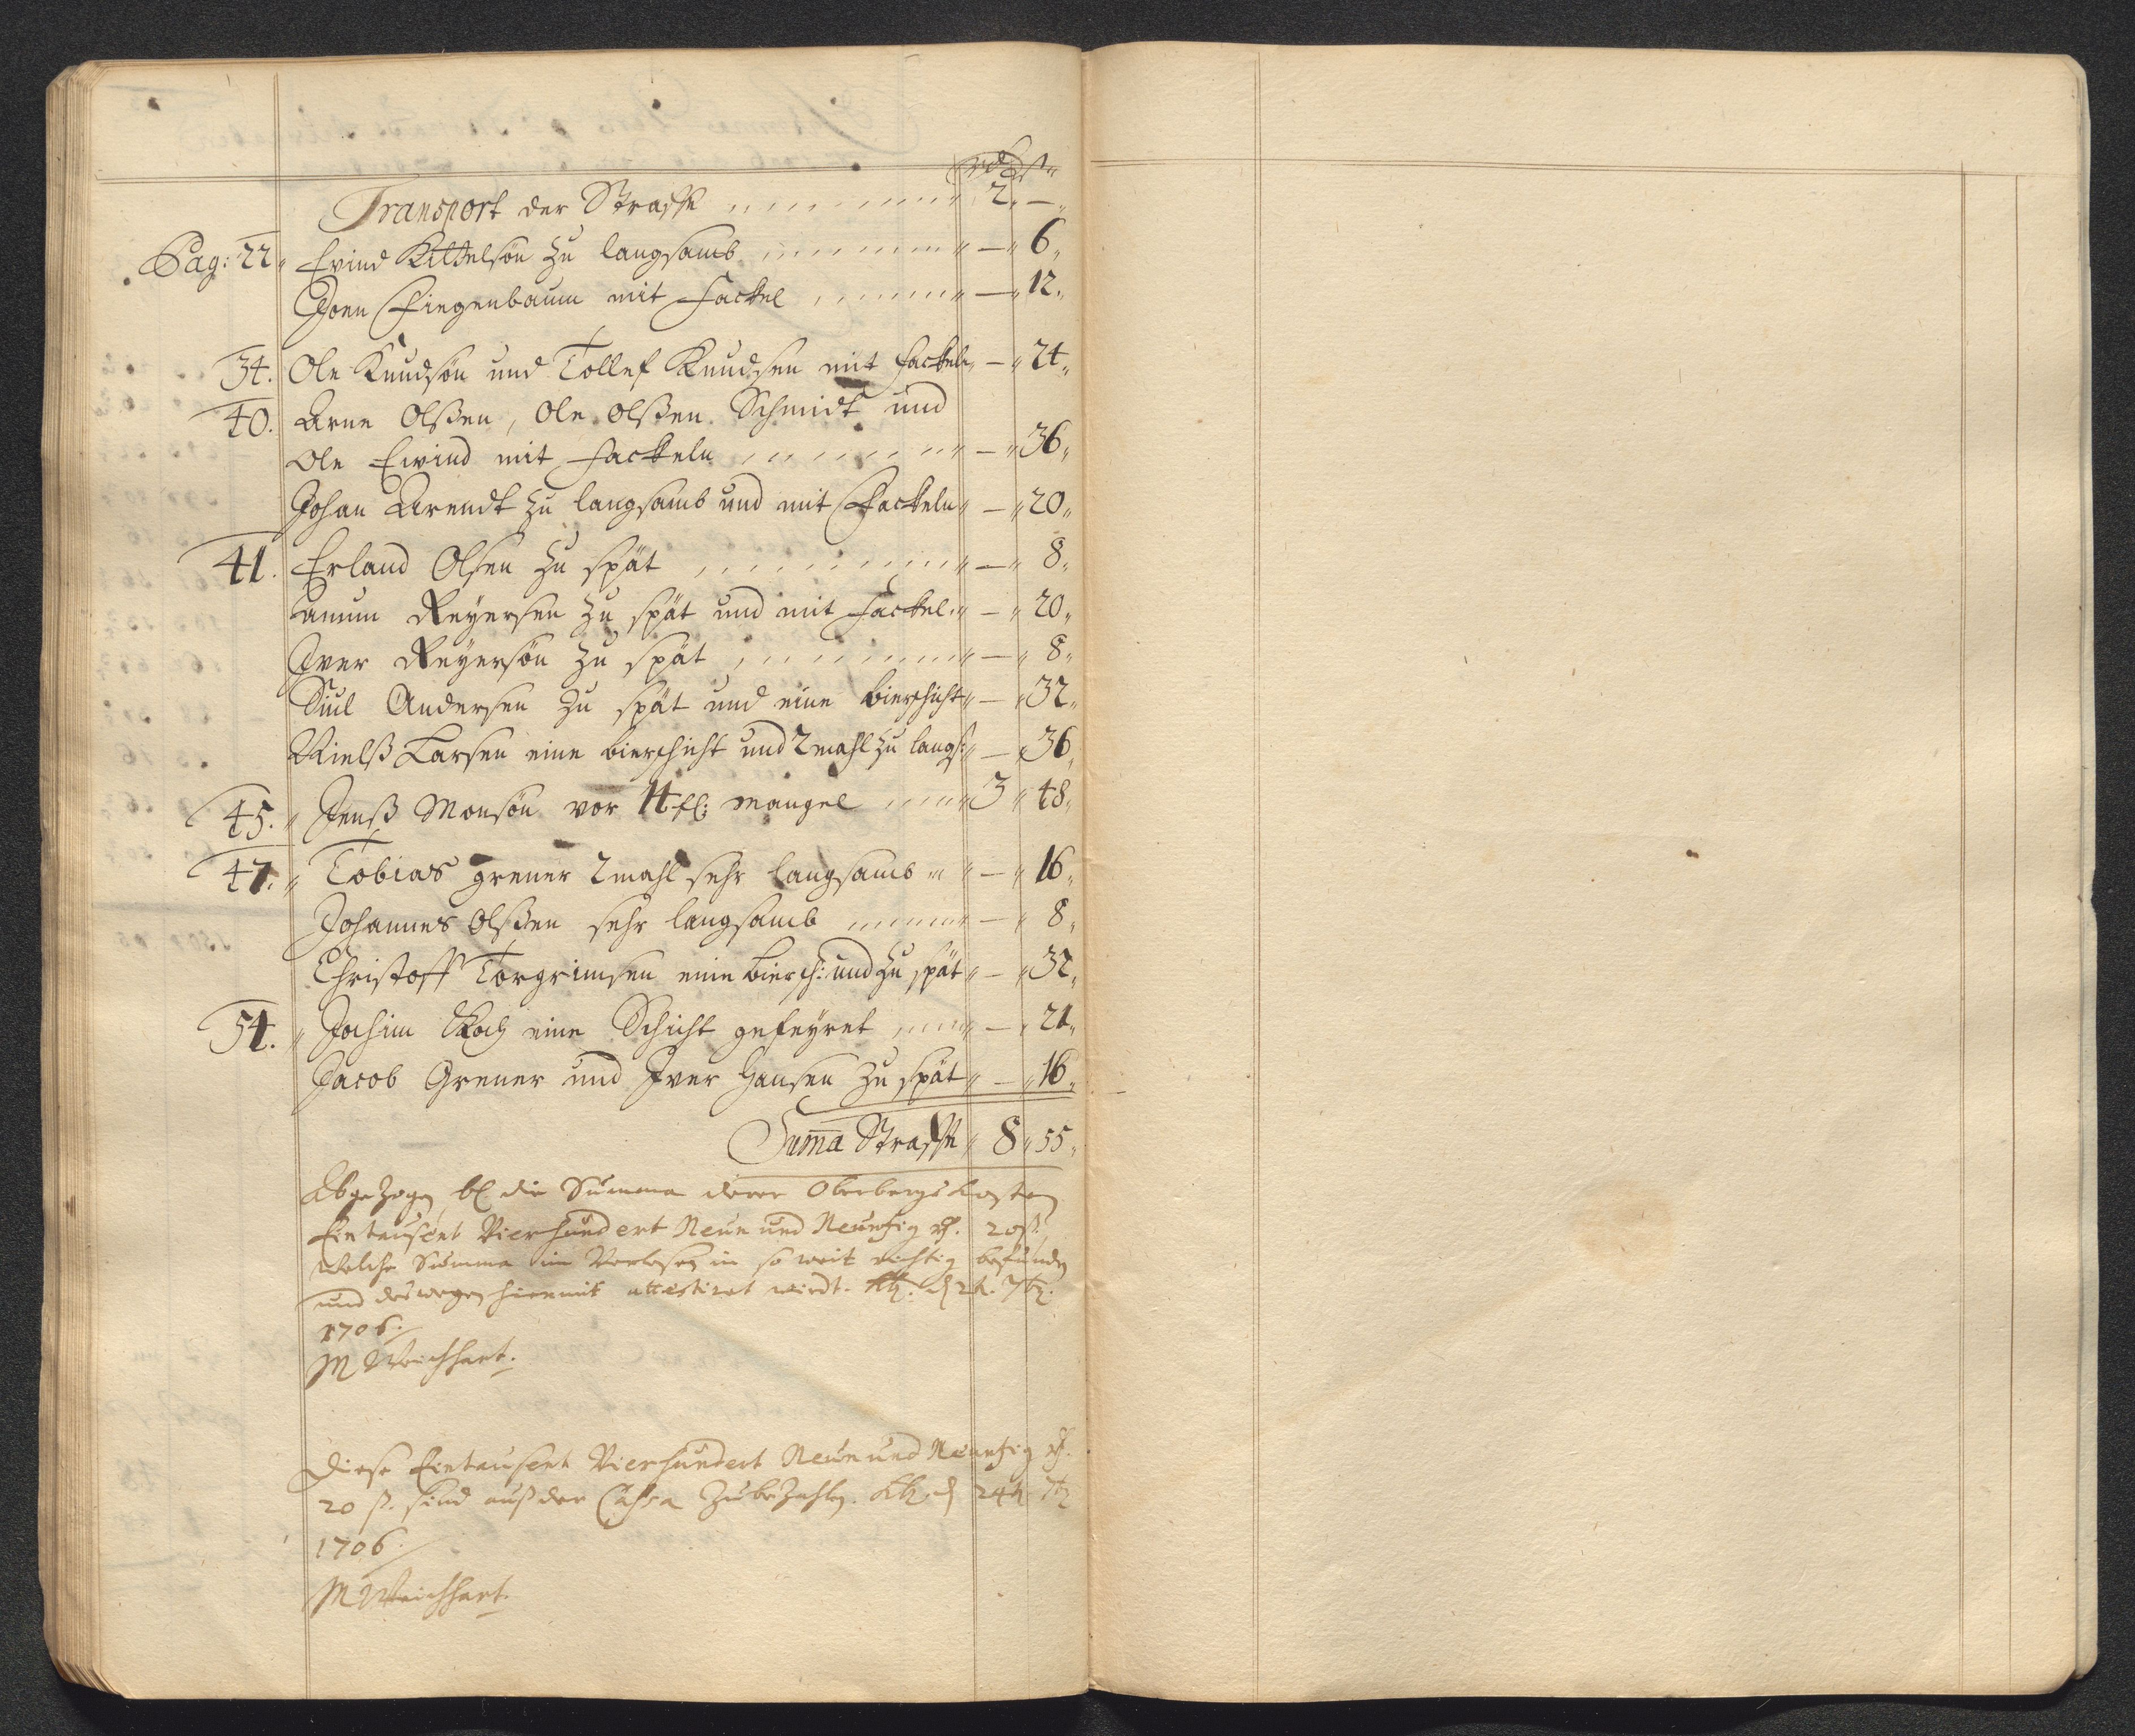 rd ß
Transport der Straffe 2 „ —
Pag: 22 „ Evind Kittelsön zu langsamb „ — „ 6 „
Joen Fiegenbaum mit Fackel „ — „ 12 „
34. Ole Knudsön und Tollef Knudsen mit fackeln „ — „ 24 „
40. Arne Olßen, Ole Olßen Schmidt und
Ole Eivind mit Fackeln „ — „ 36 „
Johan Arendt zu langsamb und mit Fackeln „ — „ 20 „
41. Erland Olsen zu spät „ — „ 8 „
Reyersen zu spät und mit Fackel „ — „ 20 „
Iver Reyersön zu spät „ — „ 8 „
Andersen zu spät und eine bierschicht „ — „ 32 „
Nielß Larsen eine bierschicht und 2 mahl zu langs: „ — „ 36 „
45. „ Jenß Monsön vor mangel „ 3 „ 48 „
47. „ Tobias grener 2 mahl sehr langsamb „ — „ 16 „
Johannes Olßen sehr langsamb „ — „ 8 „
Christoff Torgrimsen eine biersch: und zu spät „ — „ 32 „
54. „ Jochim Koch eine Schicht gefeyret „ — „ 21 „
Jacob Grener und Iver Hansen zu spät „ — „ 16 „
Sum̄a Straffe „ 8 „ 55 „
Abgezogen die Summa derer Oberbergs Kosten
Eintausent Vierhundert Neun und Neuntzig 20 ß.
welche Summa im Verlesen in so weit richtig befunden
und deswegen hiermit attestiret wirdt.
1706.
M Weichhart.
Diese Eintausent Vierhundert Neun und Neuntzig
20 ß. sind auß der Cassa Zubezahlen. 24
1706.
M Weichhart.